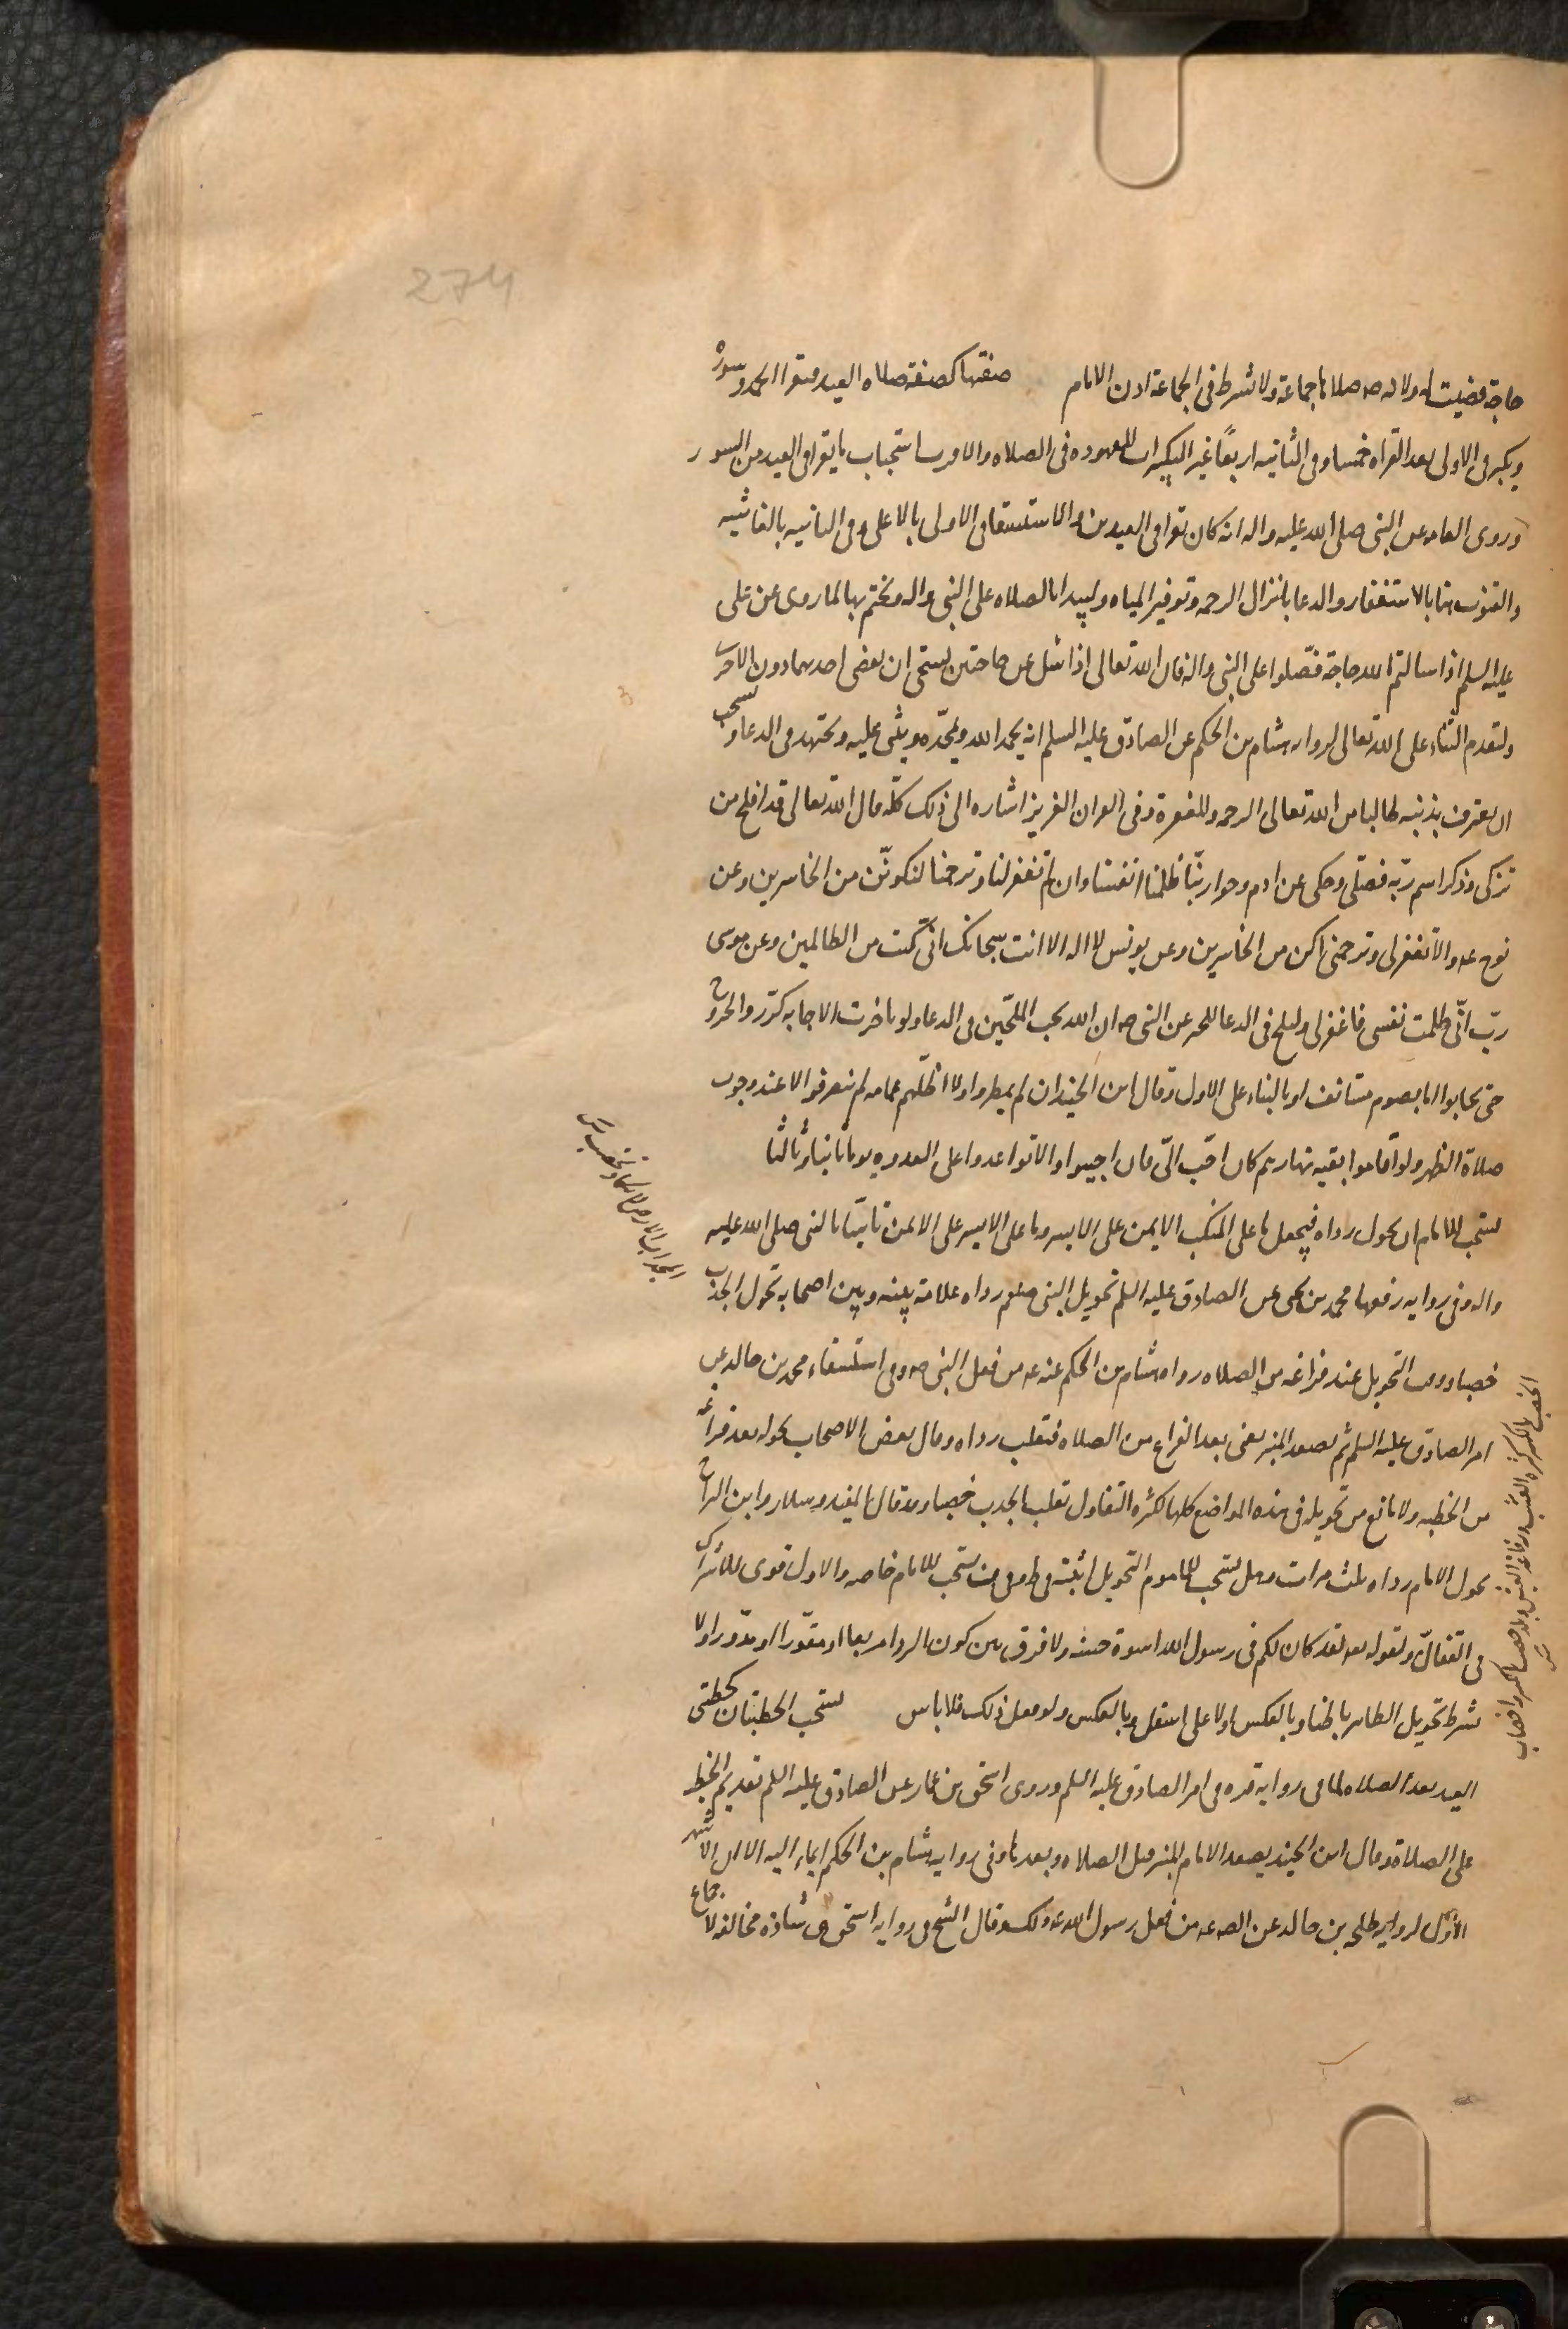 274
حاجة قضيت له ولانه ص صلاها جماعة ولا يشترط في الجماعة اذن الامام صفتها كصفة صلاه العيد فيقرا الحمد وسورة
ويكبر في الاولى بعد القراه خمسا وفى الثانيه اربعًا غير التكبيرات المعهوده فى الصلاه والاقرب استحباب ما يقرا في العيد من السور
وروى العامه عن النبى صلى الله عليه واله انه كان يقرا في العيدين والاستسقا في الاولى بالاعلى وفى الثانيه بالغاشيه
والقنوت هنا بالاستغفار والدعا بانزال الرحمه وتوفير المياه وليبدا بالصلاه على النبى واله ويختم بها لما روى عن على
عليه السلم اذا سالتم الله حاجة فصّلوا على النبى واله فان الله تعالى اذا سُئل عن حاجتين يستحى ان يقضى احدهما دون الاخرى
وليقدم الثناء على الله تعالى لروايه هشام بن الحكم عن الصادق عليه السلم انه يحمد الله ويمجّده ويثنى عليه ويجتهد في الدعا ويستحب
ان يعترف بذنبه طالبا من الله تعالى الرحمه والمغفرة وفى القران العزيز اشاره الى ذلك كلّه قال الله تعالى قد افلح من
تزكى وذكر اسم ربّه فصلّى وحكى عن ادم وحوا ربّنا ظلمنا انفسنا وان لم تغفر لنا وترحمنا لنكوننّ من الخاسرين وعن
نوح ع والاّ تغفر لى وترحمنى اكن من الخاسرين وعن يونس لا اله الا انت سبحانك انّى كنت من الظالمين وعن موسى
ربّ انّى ظلمت نفسى فاغفر لى وليلح فى الدعا للخبر عن النبى ص ان الله يحب الملحّين في الدعا ولو تاخرت الاجابه كرّر والخروج
حتى يجابوا اما بصوم مستانف او بالبناء على الاول وقال ابن الجنيد ان لم يمطروا ولا اظلّهم غمامه لم ينصرفوا الا عند وجوب
صلاة الظهر ولو اقاموا بقيه نهارهم كان احّب الىّ فان اجيبوا والا تواعدوا على العدو يوما ثانيا وثالثا
يستحب للامام ان يحول رداه فيجعل ما على المنكب الايمن على الايسر وما على الايسر على الايمن تاسّيا بالنبى صلى الله عليه
واله وفى روايه رفعها محمد بن يحيى عن الصادق عليه السلم تحويل النبى صلعم رداه علامة بينه وبين اصحابه تحول الجدب
خصبا ووقت التحويل عند فراغه من الصلاه رواه هشام بن الحكم عنه ع من فعل النبى ص وفى استسقاء محمد بن خالد عن
امر الصادق عليه السلم ثم يصعد المنبر يعنى بعد الفراغ من الصلاه فيقلب رداه وقال بعض الاصحاب يحوله بعد فراغه
من الخطبه ولا مانع من تحويله فى هذه المواضع كلها لكثره التفاول بقلب الجدب خصبا وبه قال المفيد وسلار وابن البراج
يحول الامام رداه ثلث مرات وهل يستحب للماموم التحويل اثبته في ط وفي ف يستحب للامام خاصه والاول قوى للاشتراك
في التفال ولقوله تعه لقد كان لكم فى رسول الله اسوة حسنه ولا فرق بين كون الردا مربعا او مقوّرا او مدّورا ولا
يشرط تحويل الظاهر باطنا وبالعكس ولا اعلى اسفل وبالعكس ولو فعل ذلك فلا باس يستحب الخطبتان كخطبتى
العيد بعد الصلاه لما في رواية مره في امر الصادق عليه السلم وروى اسحق بن عمار عن الصادق عليه السلم تقديم الخطبه
على الصلاة وقال ابن الجنيد يصعد الامام المنبر قبل الصلاه وبعدها وفى روايه هشام بن الحكم ايماء اليه الا ان الاشهر
الاوّل لروايه طلحه بن خالد عن الص ع من فعل رسول الله ص ذلك وقال الشيخ في روايه اسحق هى شاذه مخالفه لاجماع
الخصب بالكسر كثرة العشب ورفاغة العيش